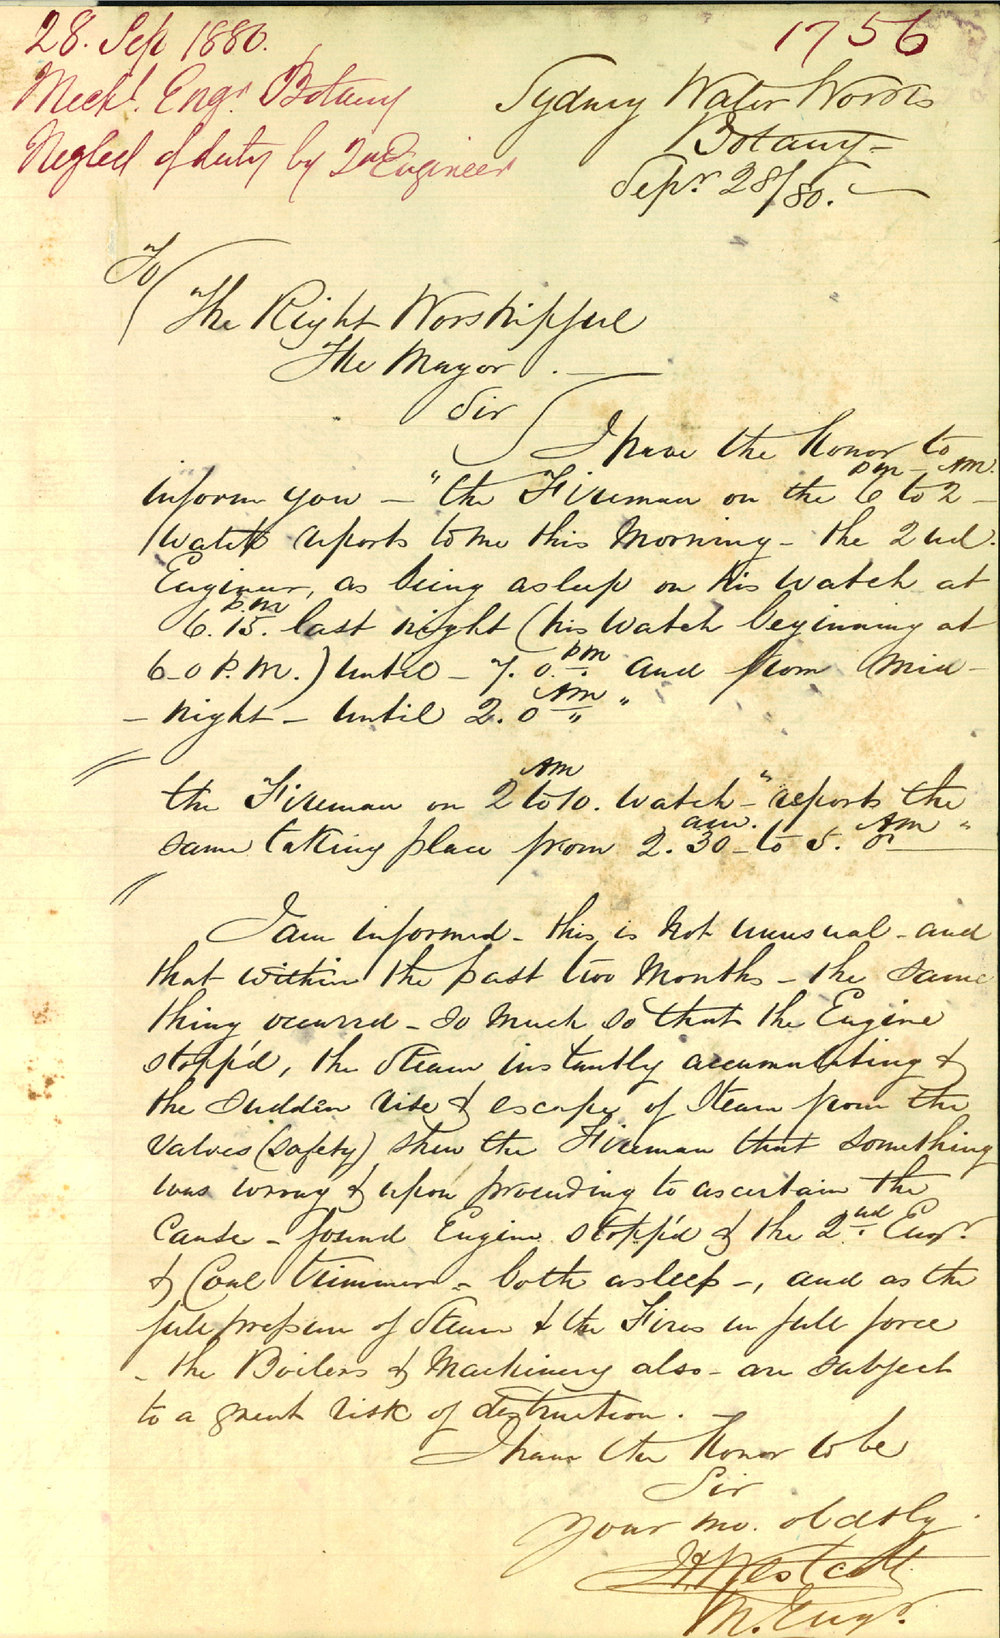 28. Sep 1880.
1756
Mechl. Engr. Botany
Neglect of duty by 2nd Engineer
Sydney Water Works
Botany –
Sepr. 28/80. –
To
The Right Worshipful
The Mayor . –
Sir
I have the honor to
inform you – "the Fireman on the 6 pm – to 2 AM. –
Watch reports to me this Morning – the 2nd.
Engineer, as being asleep on his Watch at
6.15. p.m last night (his Watch beginning at
6–0 P.M.) until – 7.0. pm and from Mid –
– night – until 2.0 AM "
the Fireman on 2 AM to 10. Watch – "reports the
same taking place from 2.30 am. – to 5.0 AM "
I am informed – this is not unusual – and
that within the past two Months – the same
thing occurred – so much so that the Engine
stopp'd, the Steam instantly accumulating &
the sudden rise & escape of Steam from the
Valves (safety) shew the Fireman that something
was wrong & upon proceeding to ascertain the
Cause – found Engine stopp'd & the 2nd. Engr.
& Coal trimmer – both asleep –, and as the
full pressure of Steam & the Fires in full force
– the Boilers & Machinery also – are subject
to a great risk of destruction.
I have the Honor to be
Sir
Your mo. obdtly
Westcott
M. Engr.